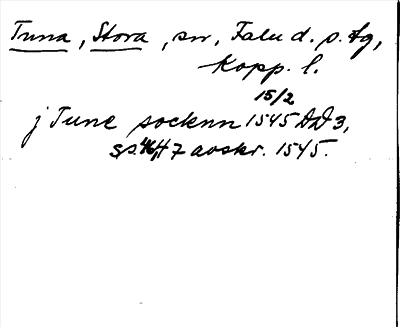 Tuna, Stora, sn, Falu d. s. fg,
Kopp. l.
15/2
j Tune socknn 1545 DD 3,
s. 46, 47 avskr. 1545.